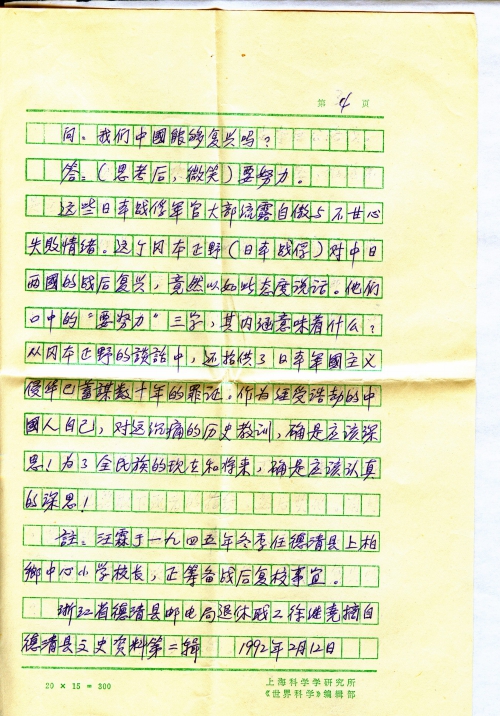 第 4 页
问。我们中國能够复兴吗？
答。（思考后，微笑）要努力。
这些日军战俘军官大部流露自傲与不甘心
失败情绪。这个冈本正野（日军战俘）对中日
两國的战后复兴，竟然以如此态度说话。他们
口中的“要努力”三字，其内涵意味着什么？
从冈本正野的談話中，还指供了日本军國主义
侵华已蓄謀数十年的罪证。作为经受浩劫的中
國人自己，对这沉痛的历史教训，确是应该深
思！为了全民族的现在和将来，确是应该认真
的深思！
註。汪霖于一九四五年冬季任德清县上柏
鄉中心小学校长，正筹备战后复校事宜。
浙江省德清县邮电局退休职工徐继尧摘自
德清县文史资料第二辑 1992年2月12日
20 × 15 = 300
上海科学学研究所
《世界科学》编辑部